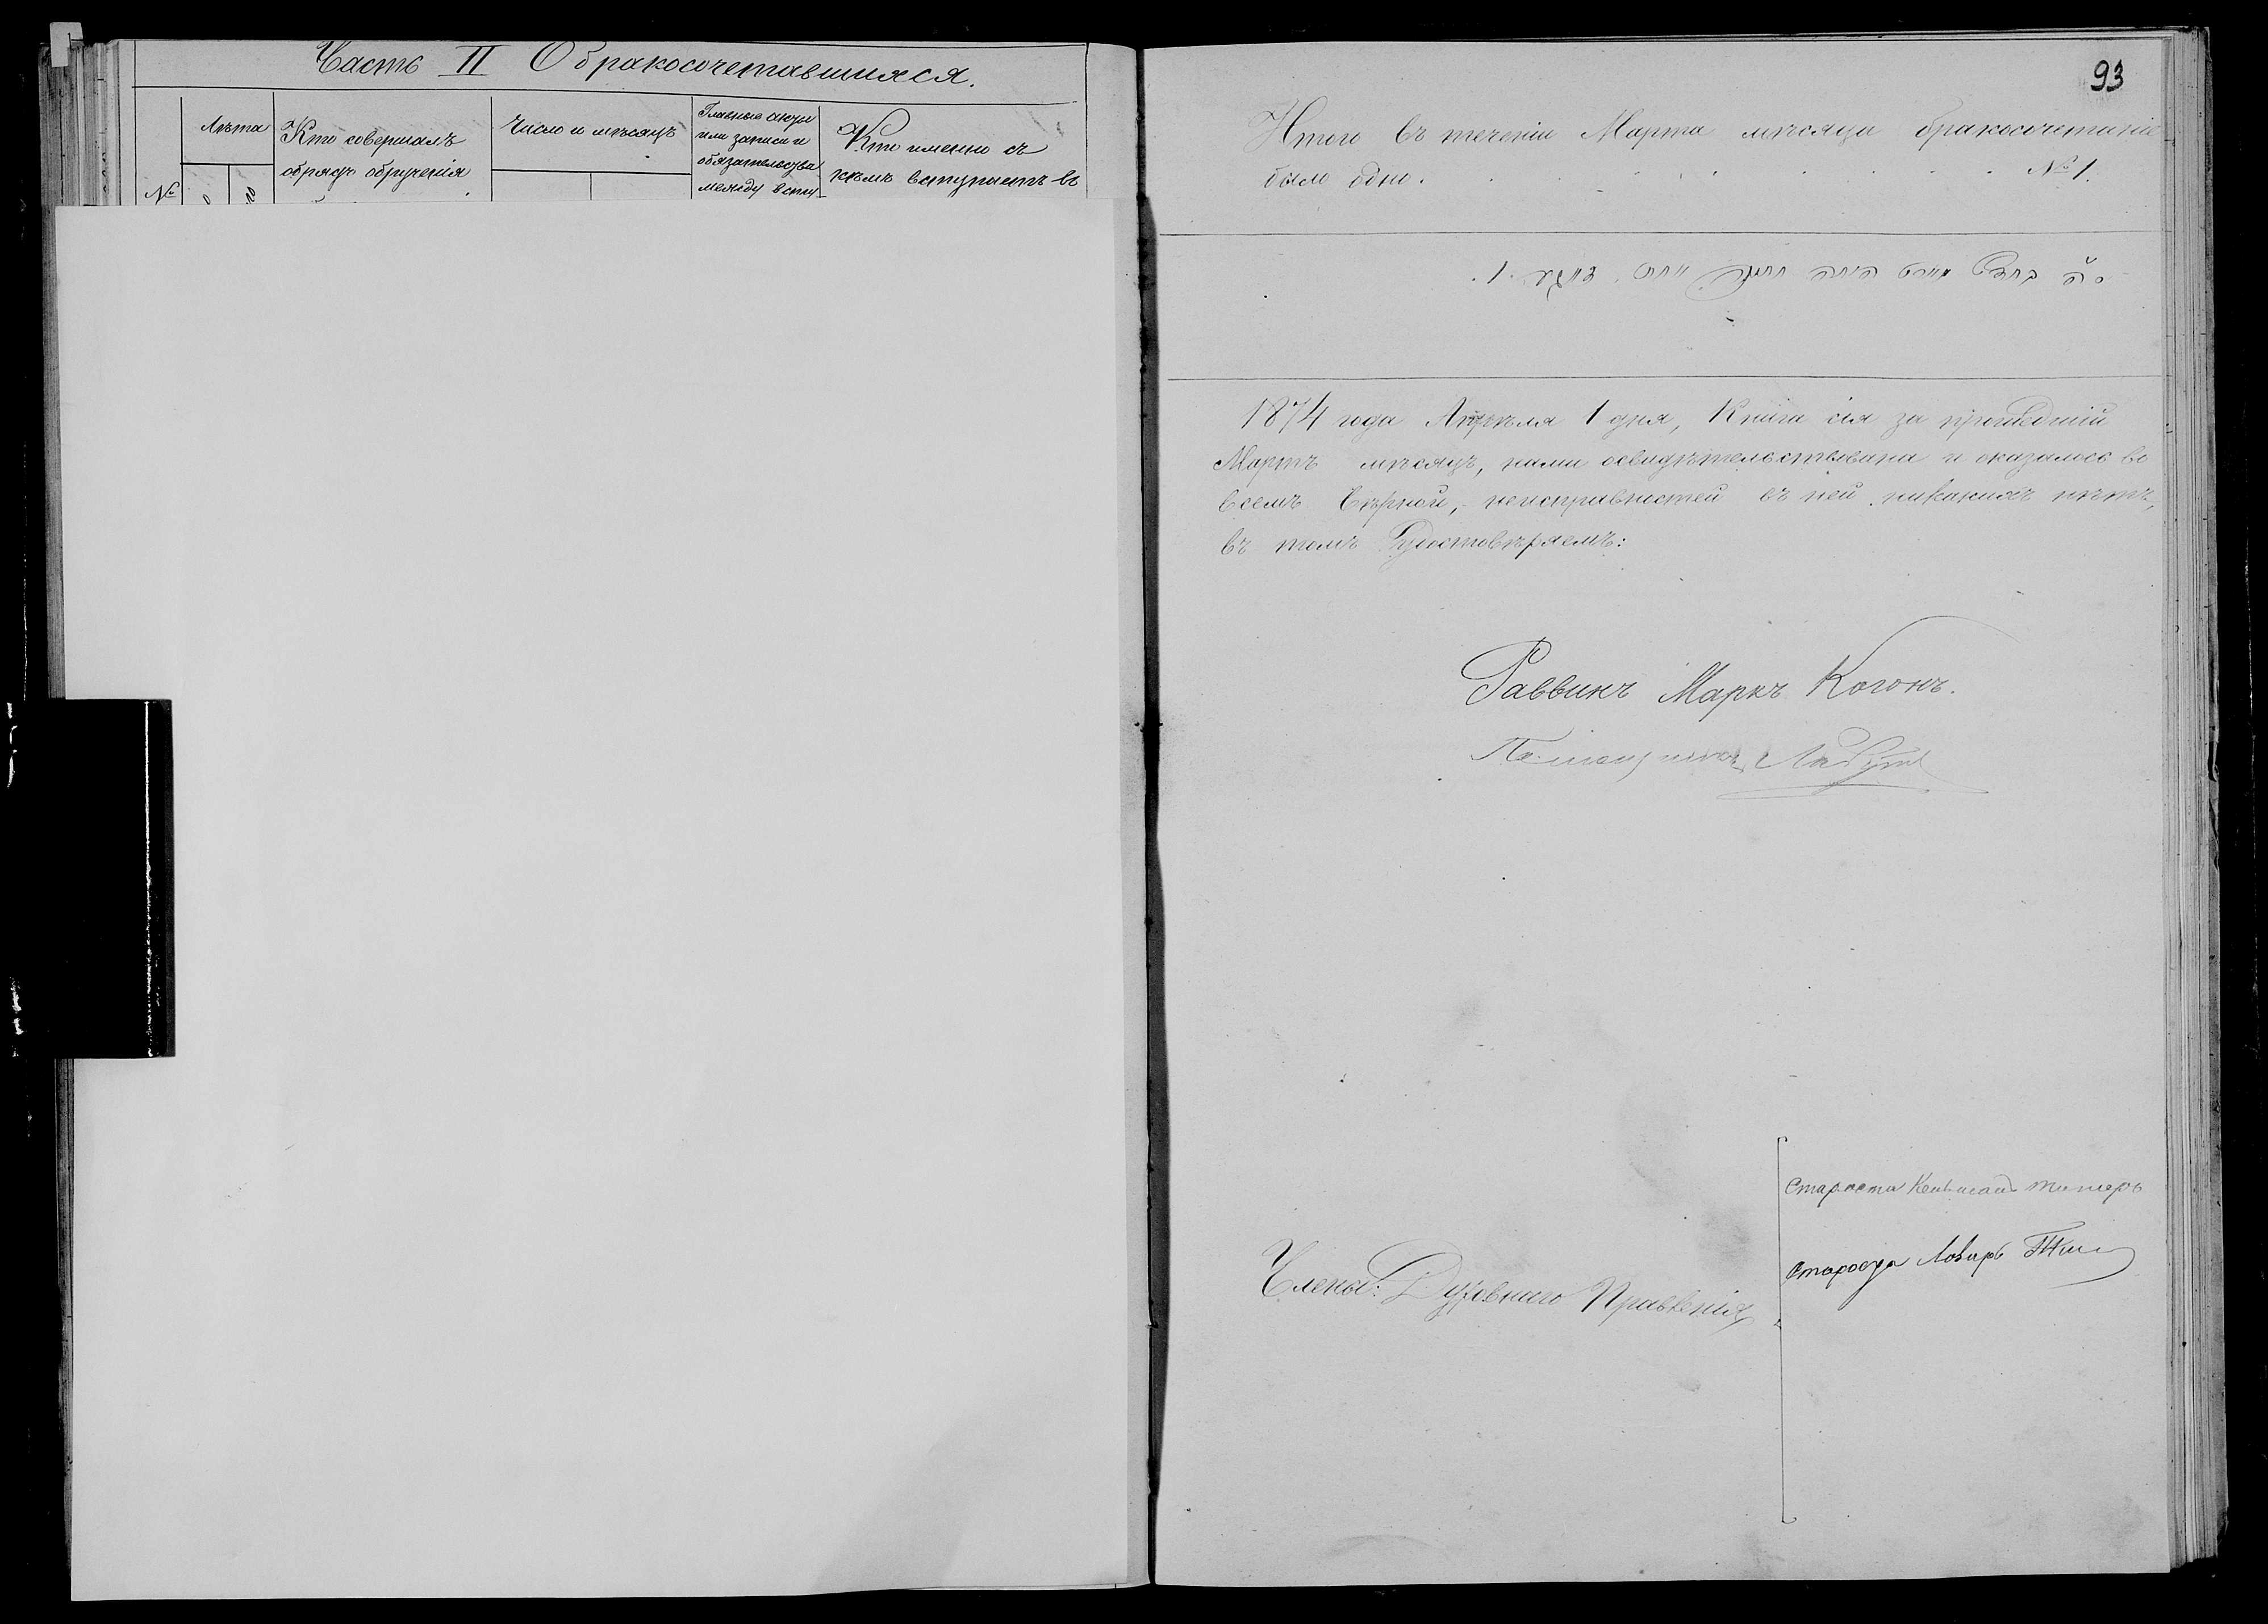 Часть II О бракосочетавшихся.
№
Лѣта
Кто совершалъ
обрядъ обрученія
Число и мѣсяцъ
Главные акты
или записи и
обязательства
между всту-
Кто именно съ
кѣмъ вступаетъ въ
93
Итого въ теченіи Марта мѣсяца бракосочетаніе
было одно. № 1.
1.
1874 года Апрѣля 1 дня, Книга сія за прошедшій
Мартъ мѣсяцъ, нами освидѣтельствована и оказалось во
всемъ вѣрной, неисправностей въ ней никакихъ нѣтъ,
въ томъ удостовѣряемъ:
Раввинъ Маркъ Когонъ.
Члены: Духовнаго Правленія
Староста
Староста